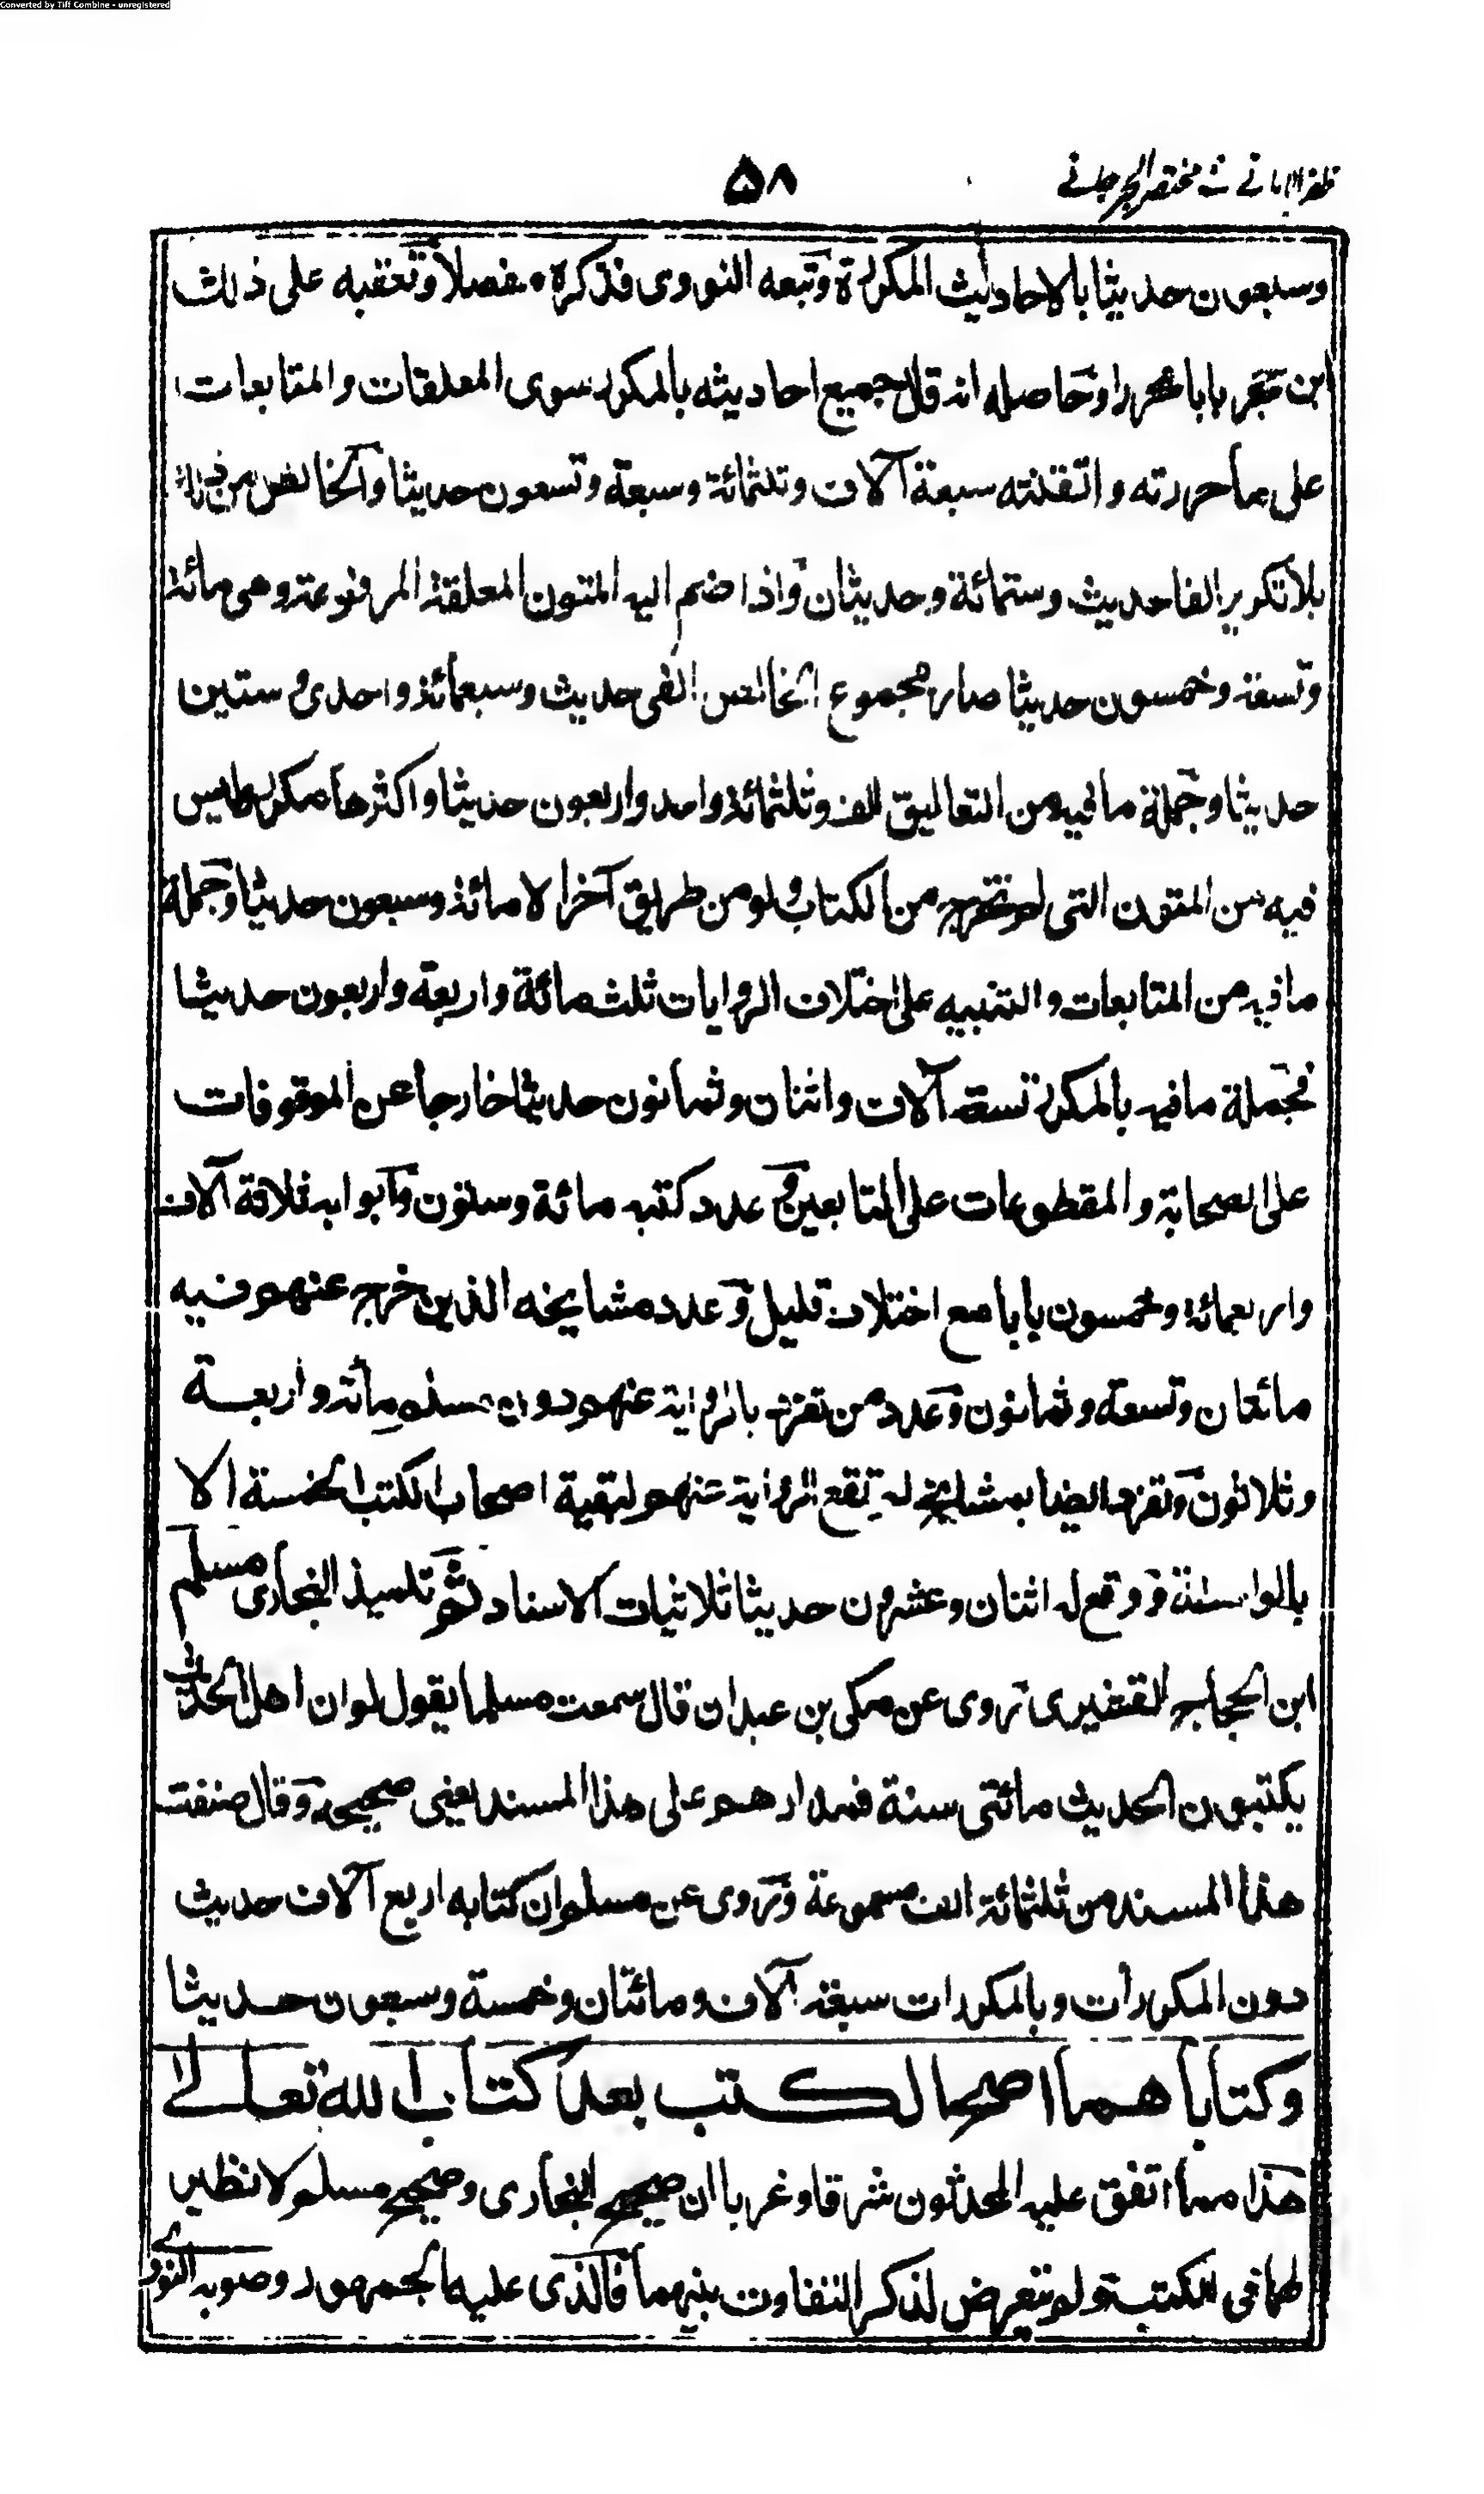 Converted by Tiff Combine - unregistered
ظفر الاماني شـ مختصر الجرجاني
۵۸
وسبعون حديثا بالاحاديث المكررة وتبعه النووى فذكره مفصلا وتعقبه على ذلك
ابن حجر بابا محررا وحاصله انه قال جميع احاديثه بالمكرر سوى المعلقات والمتابعات
على ما حررته واتقنته سبعة آلاف وثلثمائة وسبعة وتسعون حديثا والخالص من ذلك
بلا تكرير الفا حديث وستمائة وحديثان واذا ضم اليه المتون المعلقة المرفوعة وهى مائة
وتسعة وخمسون حديثا صار مجموع الخالص الفى حديث وسبعمائة واحدى وستين
حديثا وجملة مافيه من التعاليق الف وثلثمائة واحد واربعون حديثا واكثرها مكرر ليس
فيه من المتون التى لم تخرج من الكتاب ولو من طريق آخر الا مائة وسبعون حديثا وجملة
مافيه من المتابعات والتنبيه على اختلاف الروايات ثلث مائة واربعة واربعون حديثا
فجملة مافيه بالمكرر تسعة آلاف واثنان وثمانون حديثا خارجا عن الموقوفات
على الصحابة والمقطوعات على التابعين وعدد كتبه مائة وستون وابوابه ثلاثة آلاف
واربعمائة وخمسون بابا مع اختلاف قليل وعدد مشايخه الذين خرج عنهم فيه
مائتان وتسعة وثمانون وعدد من تفرد بالرواية عنهم دون مسلم مائة واربعة
وثلاثون وتفرد ايضا بمشايخ لم تقع الرواية عنهم لبقية اصحاب الكتب الخمسة الا
بالواسطة ووقع له اثنان وعشرون حديثا ثلاثيات الاسناد ثم تلميذ البخارى مسلم
ابن الحجاج القشيرى روى عن مكى بن عبدان قال سمعت مسلما يقول لو ان اهل الحديث
يكتبون الحديث مائتى سنة فمدارهم على هذا المسند يعنى صحيحه وقال صنفت
هذا المسند من ثلثمائة الف مسموعة وروى عن مسلم ان كتابه اربع آلاف حديث
دون المكررات وبالمكررات سبعة آلاف ومائتان وخمسة وسبعون حديثا
وكتاباهما اصح الكتب بعد كتاب الله تعالى
هذا مما اتفق عليه المحدثون شرقا وغربا ان صحيح البخارى وصحيح مسلم لا نظير
لهما فى الكتب ولم نتعرض لذكر التفاوت بينهما فالذى عليه الجمهور وصوبه النووى